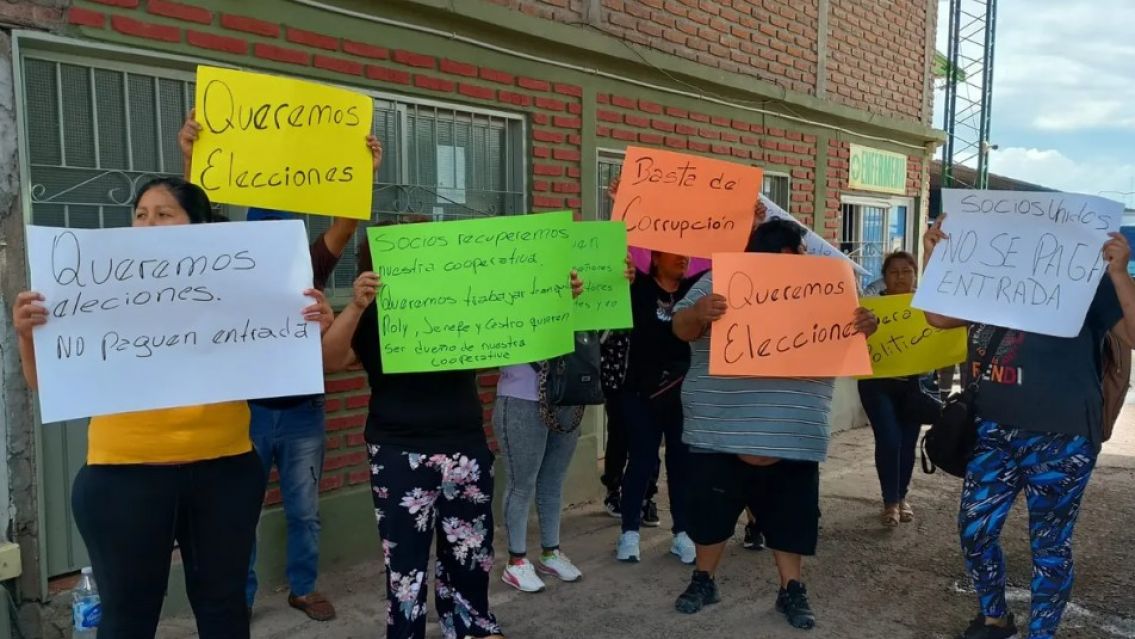 Queremos
Elecciones
Queremos
eleciones.
No paguen entrada
Socios recuperemos
nuestra cooperativa
Queremos trabajar tranqui
Roly, Jenefe y Castro quieren
ser dueño de nuestra
cooperativa
en
y no
Basta de
Corrupción
Queremos
Elecciones
ENFERMERIA
Politico
Socios Unidos
NO SE PAGA
ENTRADA
FENDI